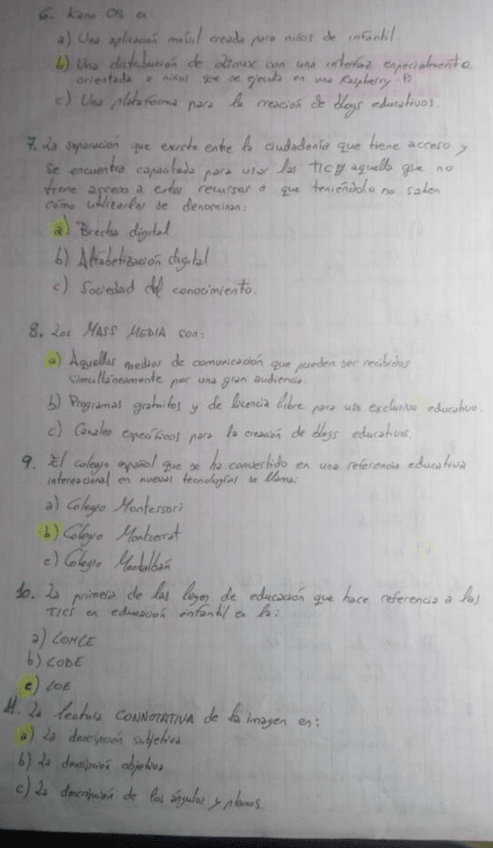 6. Kano OS es
a) Una aplicación movil creada para niños de infantil.
b) Una distribución de Linux con una interfaz especialmente
orientada a niños que se ejecuta en una Raspberry Pi
c) Una plataforma para la creación de blogs educativos.
7. La separación que existe entre la ciudadanía que tiene acceso y
se encuentra capacitada para usar las TICS y aquella que no
tiene acceso a estos recursos o que teniéndolo no saben
cómo utilizarlos se denominan:
a) Brecha digital
b) Alfabetización digital
c) Sociedad del conocimiento.
8. Los MASS MEDIA son:
a) Aquellos medios de comunicación que pueden ser recibidos
simultáneamente por una gran audiencia.
b) Programas gratuitos y de licencia libre para uso exclusivo educativo.
c) Canales específicos para la creación de blogs educativos.
9. El colegio español que se ha convertido en una referencia educativa
internacional en nuevas tecnologías se llama:
a) Colegio Montessori
b) Colegio Montserrat
c) Colegio Montalbán
10. La primera de las leyes de educación que hace referencia a las
TICS en educación infantil es la:
a) LOMCE
b) LODE
c) LOE
11. La lectura CONNOTATIVA de la imagen es:
a) La descripción subjetiva
b) La descripción objetiva
c) La descripción de los ángulos y planos.